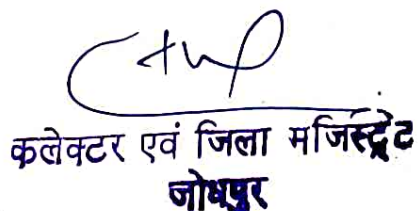 कलेक्टर एवं जिला मजिस्ट्रेट
जोधपुर